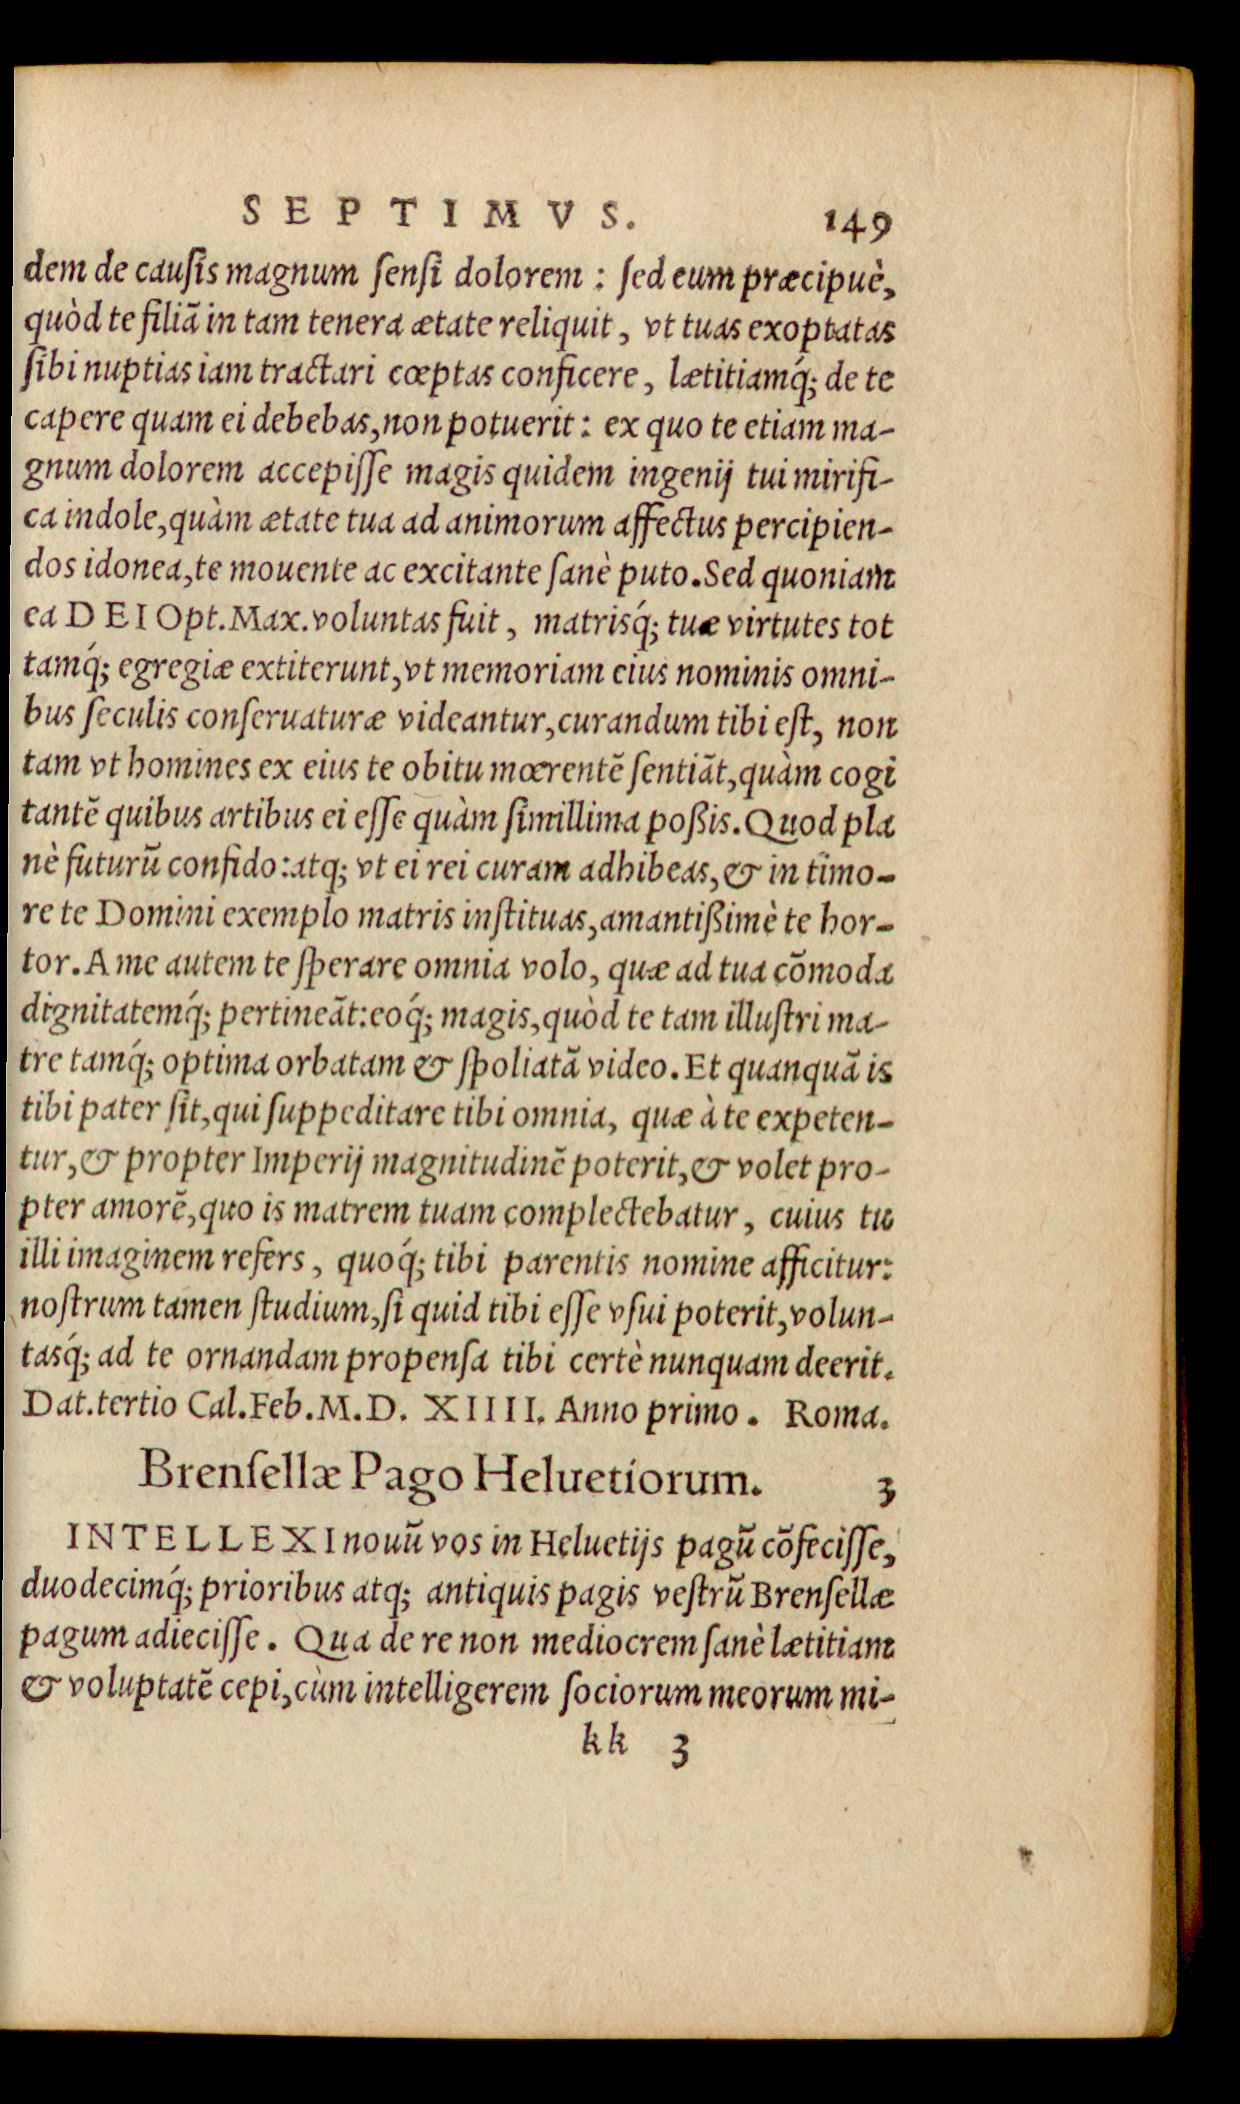 SEPTIMVS. 149
dem de causis magnum sensi dolorem : sed eum præcipuè,
quòd te filiã in tam tenera ætate reliquit, vt tuas exoptatas
sibi nuptias iam tractari cœptas conficere, lætitiamq́; de te
capere quam ei debebas,non potuerit: ex quo te etiam ma-
gnum dolorem accepisse magis quidem ingenij tui mirifi-
ca indole,quàm ætate tua ad animorum affectus percipien-
dos idonea,te mouente ac excitante sanè puto.Sed quoniam
ea DEI Opt.Max.voluntas fuit, matrisq́; tuæ virtutes tot
tamq́; egregiæ extiterunt,vt memoriam eius nominis omni-
bus seculis conseruaturæ videantur,curandum tibi est, non
tam vt homines ex eius te obitu mœrentẽ sentiãt,quàm cogi
tantẽ quibus artibus ei esse quàm simillima poßis.Quod pla
nè futurũ confido:atq; vt ei rei curam adhibeas,& in timo-
re te Domini exemplo matris instituas,amantißimè te hor-
tor.A me autem te sperare omnia volo, quæ ad tua cõmoda
dignitatemq́; pertineãt:eoq́; magis,quòd te tam illustri ma-
tre tamq́; optima orbatam & spoliatã video.Et quanquã is
tibi pater sit,qui suppeditare tibi omnia, quæ à te expeten-
tur,& propter Imperij magnitudinẽ poterit,& volet pro-
pter amorẽ,quo is matrem tuam complectebatur, cuius tu
illi imaginem refers, quoq́; tibi parentis nomine afficitur:
nostrum tamen studium,si quid tibi esse vsui poterit,volun-
tasq́; ad te ornandam propensa tibi certè nunquam deerit.
Dat.tertio Cal.Feb.M.D. XIIII. Anno primo. Roma.
Brensellæ Pago Heluetiorum. 3
INTELLEXI nouũ vos in Heluetijs pagũ cõfecisse,
duodecimq́; prioribus atq; antiquis pagis vestrũ Brensellæ
pagum adiecisse. Qua de re non mediocrem sanè lætitiam
& voluptatẽ cepi,cùm intelligerem sociorum meorum mi-
kk 3